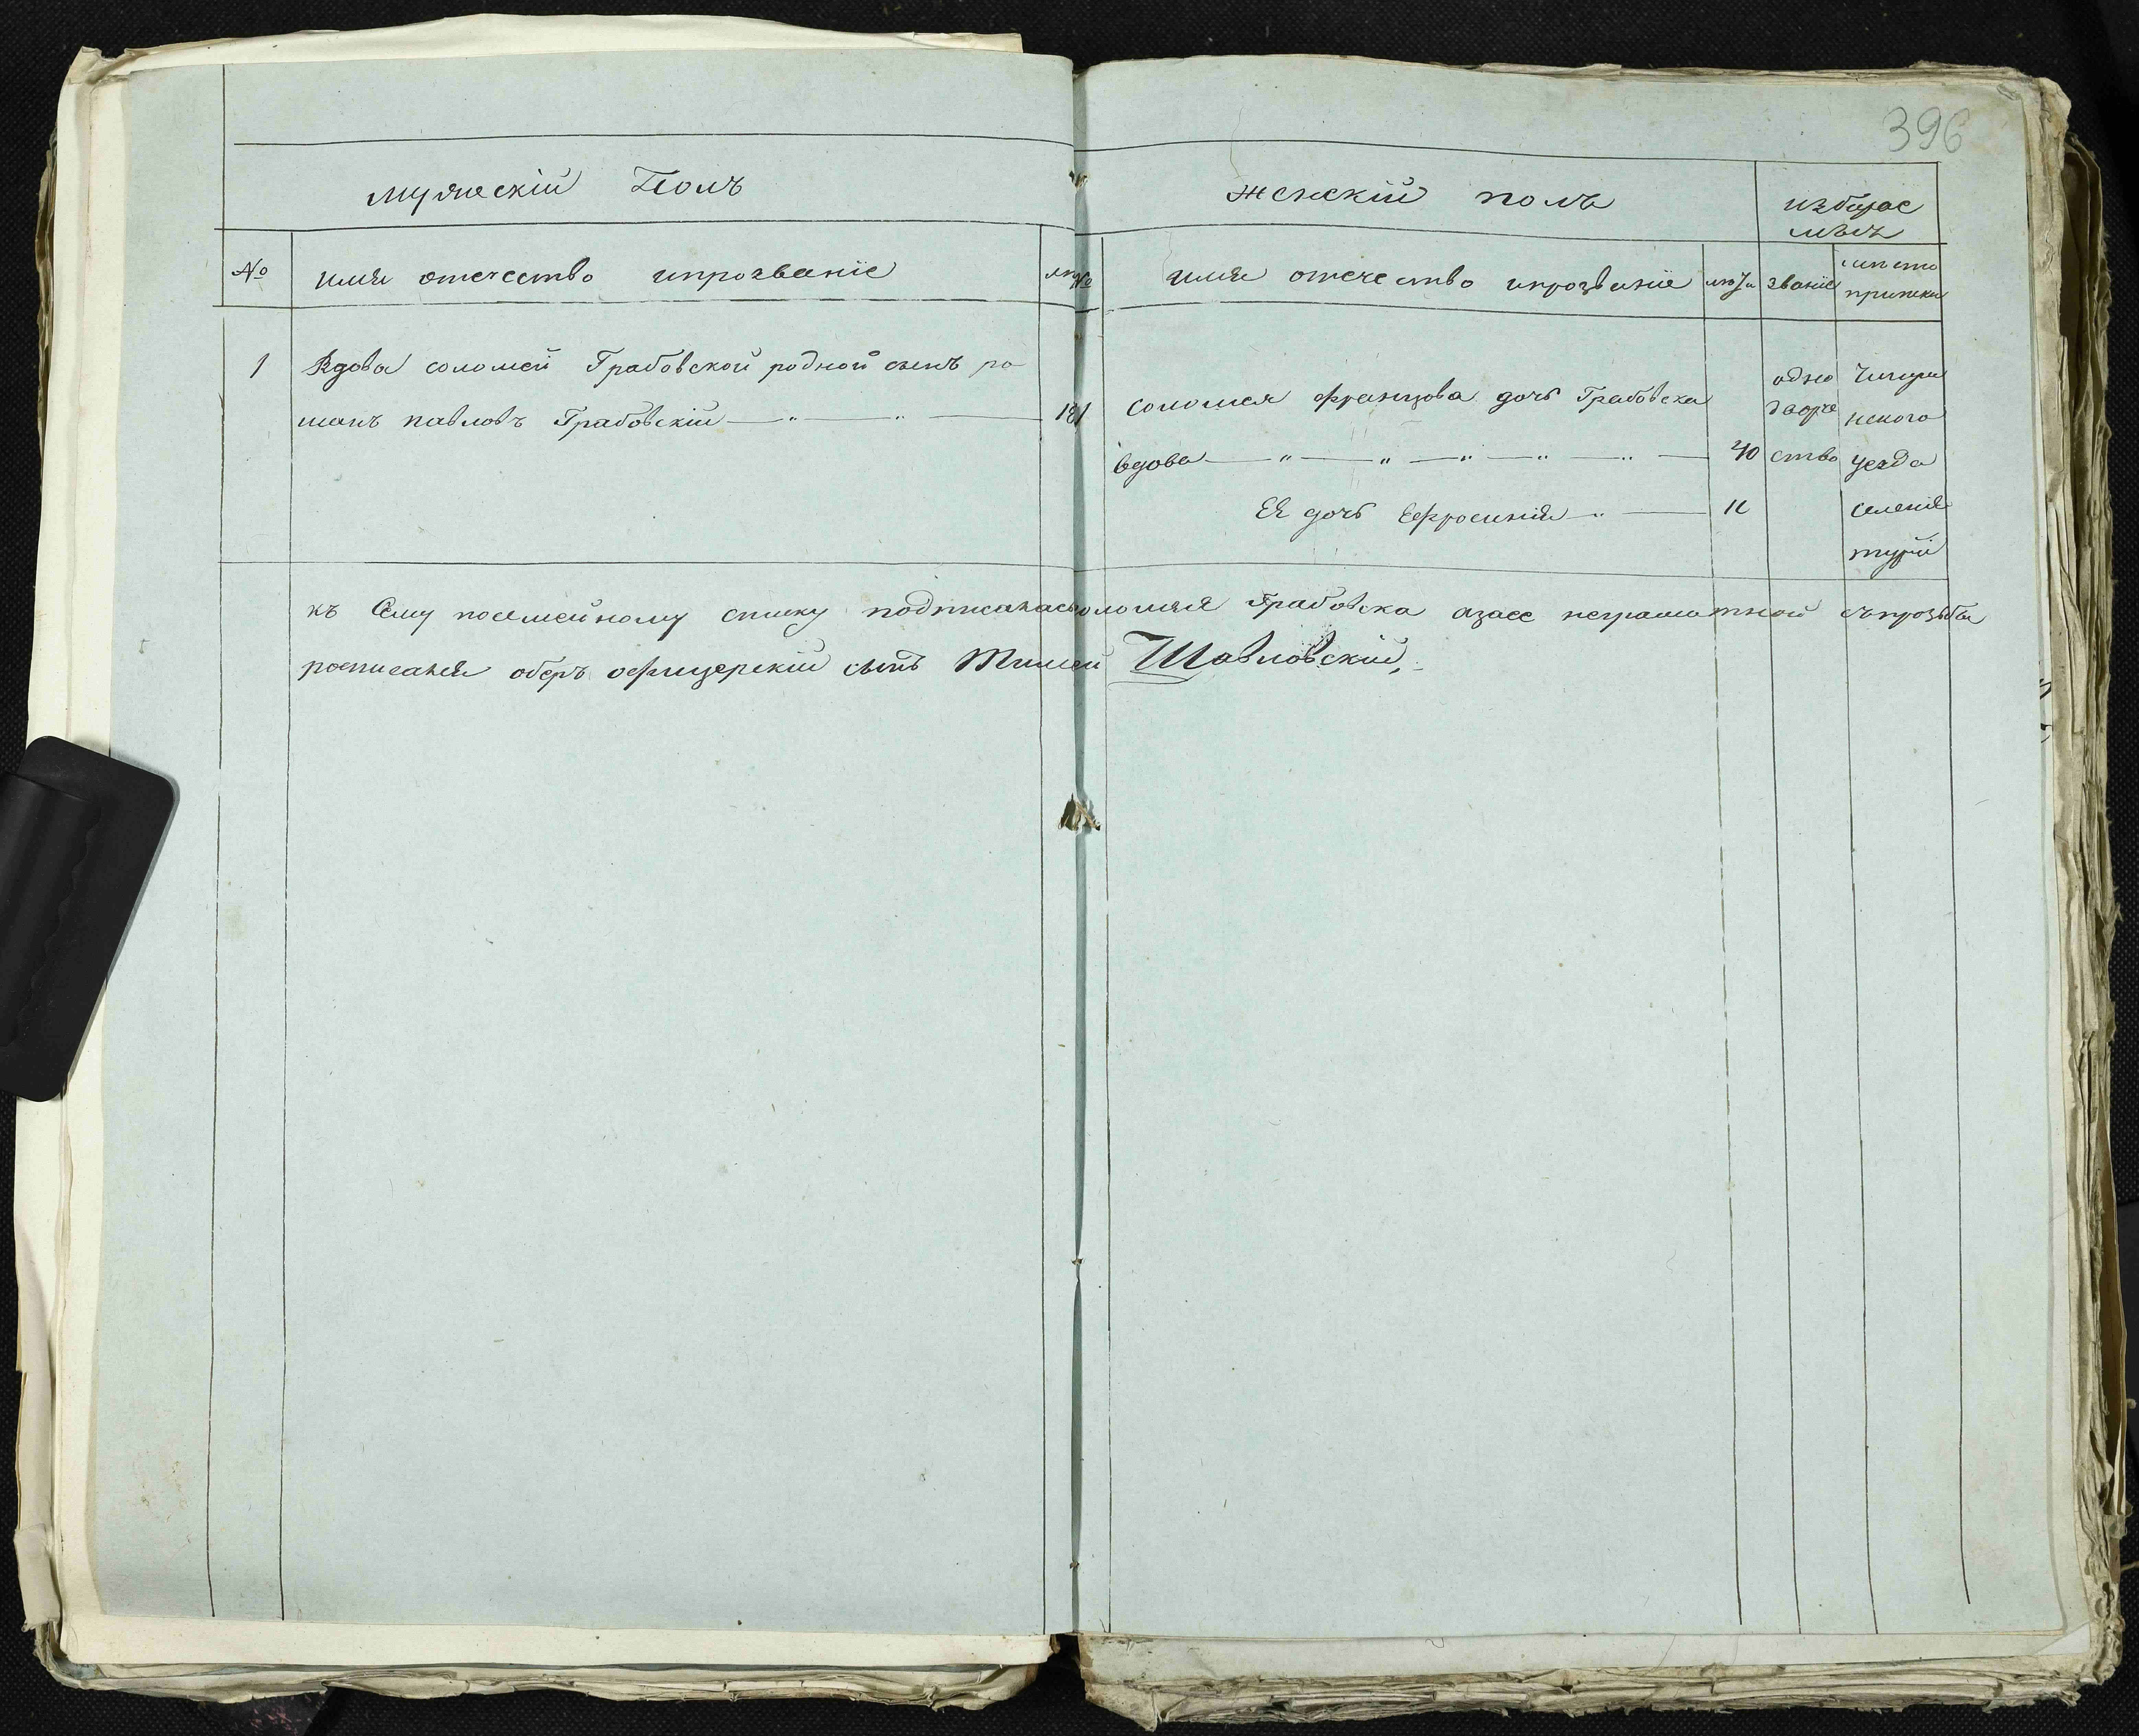 396
мужескій Полъ
женскій полъ
избирае
мыхъ
№ имя отечество ипрозваніе
№ имя отечество ипрозваніе лѣта званіе место
приписки
1 Вдова соломеи Грабовской родной сынъ ро
манъ павловъ Грабовскій
соломея францова дочь Грабовска
вдова 40
Ея дочь Ефросинія 11
одно
дворче
ство
Чигири
нского
уезда
селенія
турій
къ Сему посемейному списку подписалась соломея Грабовска азаее неграмотной съпрозьбы
росписался оберъ офицерскій сынъ Шавловскій